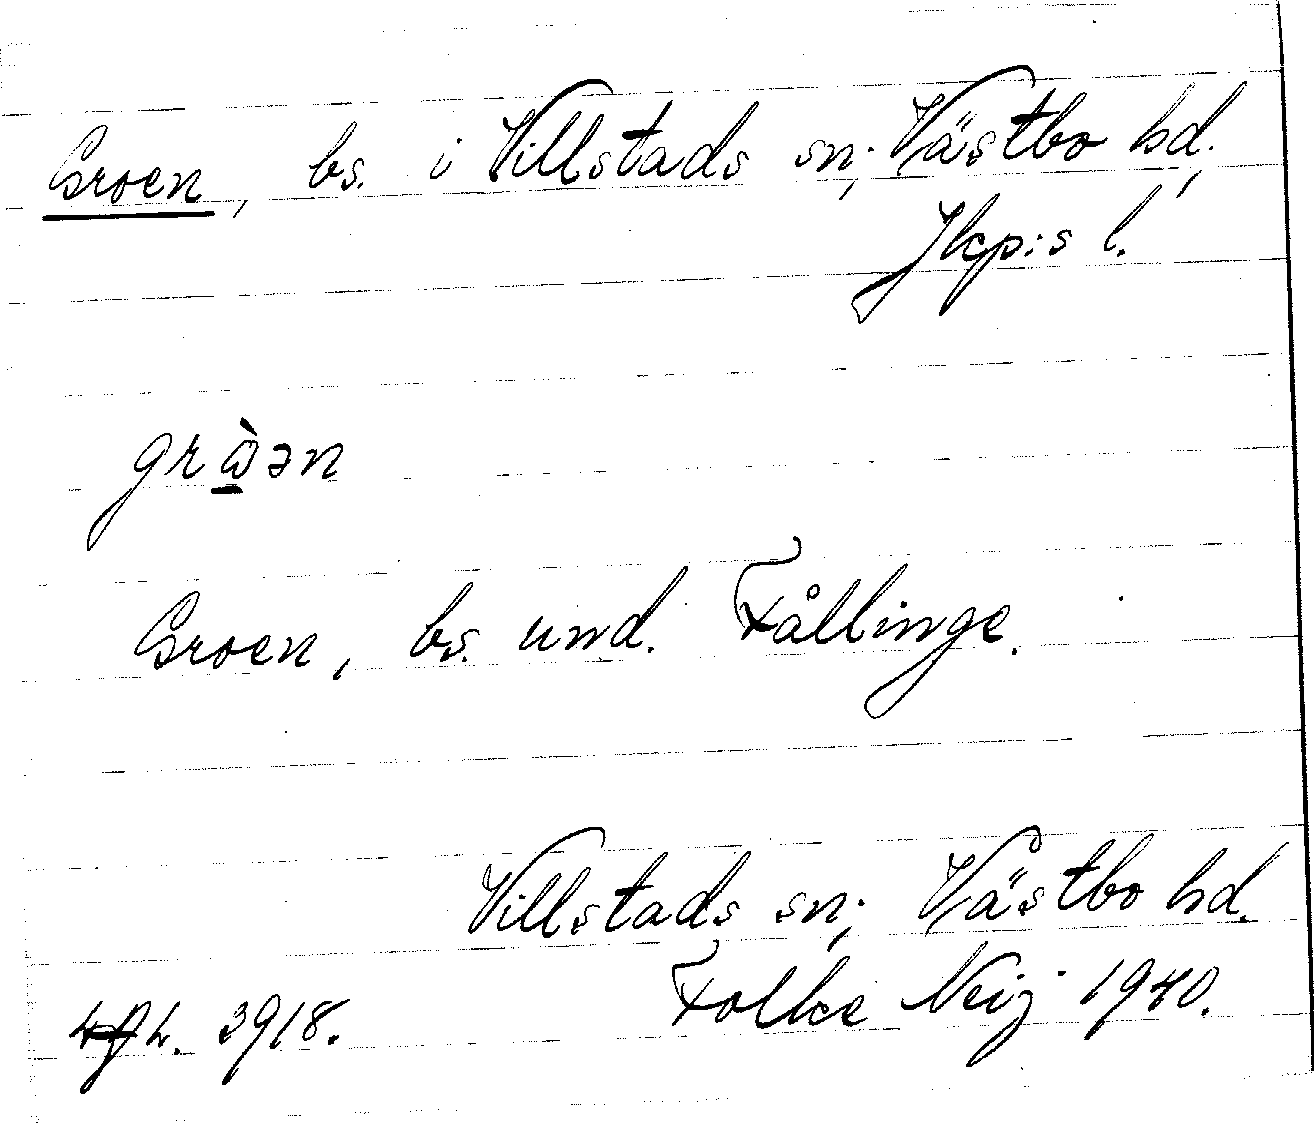 Groen, bs. i Villstads sn, Västbo hd,
Jkp:s l.
grὼən
Groen, bs. und. Fållinge.
Villstads sn, Västbo hd.
Folke Neij 1940.
3918.